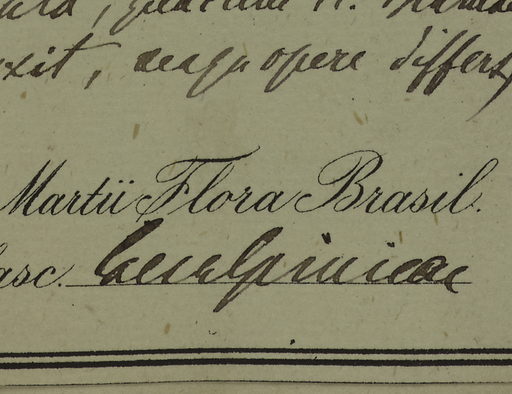 exit, magnopere differt
Martii Flora Brasil.
asc. Caesalpinieae